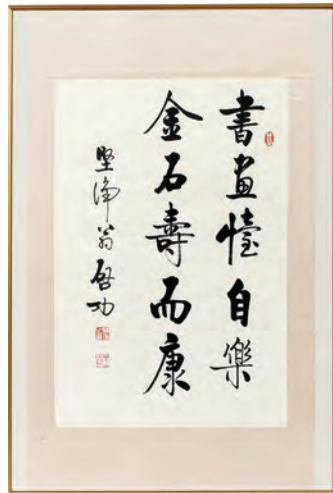 書畫自樂
金石壽而康
堅浄翁啓功